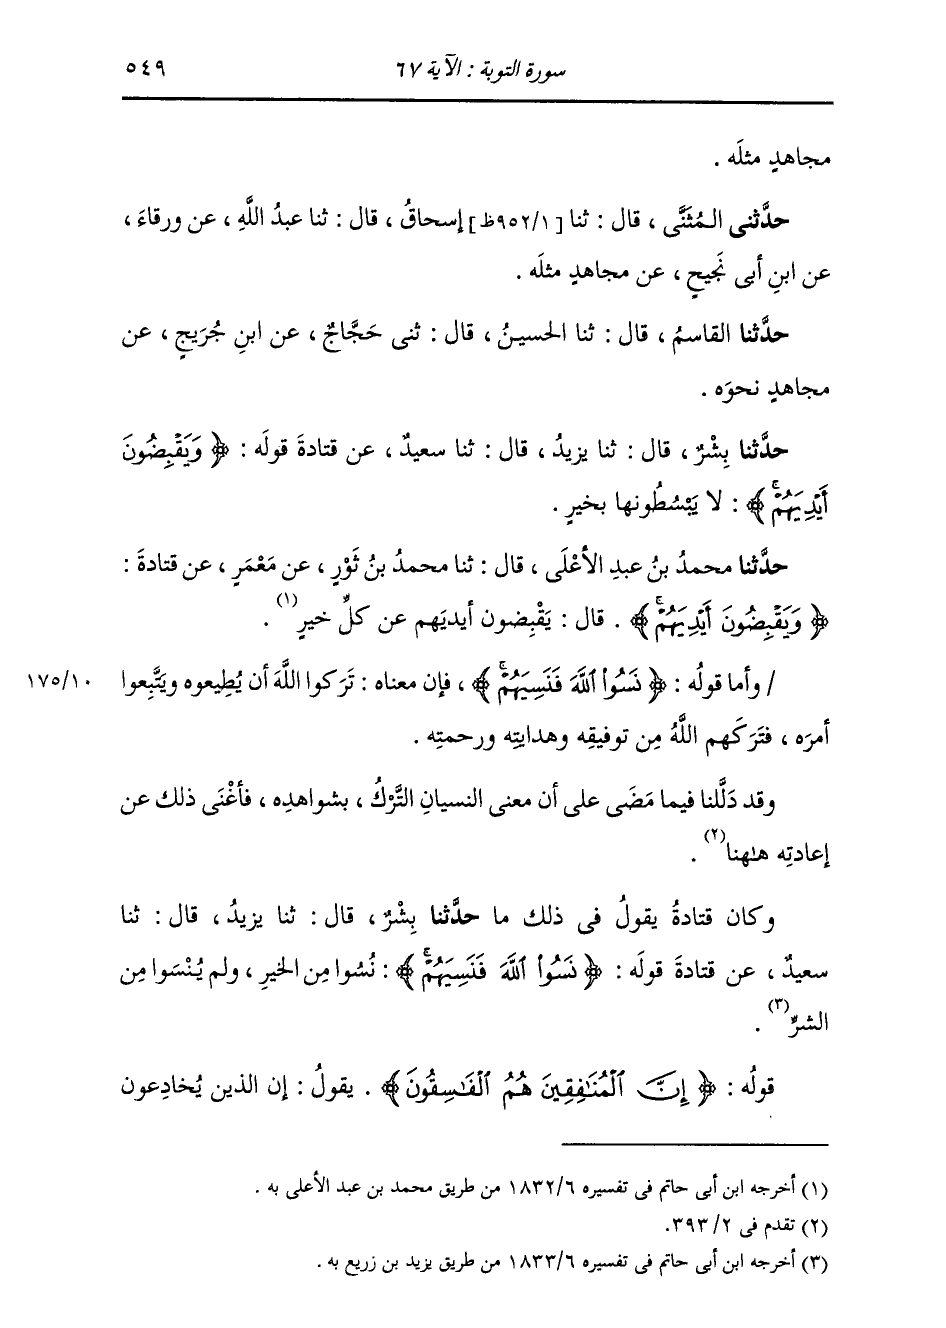 سورة التوبة : الآية ٦٧
٥٤٩
مجاهدٍ مثلَه .
حدَّثنى المُثَنَّى ، قال : ثنا [٩٥٢/١ظ] إسحاقُ ، قال : ثنا عبدُ اللَّهِ ، عن ورقاءَ ،
عن ابنِ أبى نَجيحٍ ، عن مجاهدٍ مثلَه .
حدَّثنا القاسمُ ، قال : ثنا الحسينُ ، قال : ثنى حَجَّاجٌ ، عن ابنِ جُرَيجٍ ، عن
مجاهدٍ نحوَه .
حدَّثنا بِشْرٌ ، قال : ثنا يزيدُ ، قال : ثنا سعيدٌ ، عن قتادةَ قولَه : ﴿ وَيَقْبِضُونَ
أَيْدِيَهُمْ ۚ ﴾ : لا يَبْسُطُونها بخيرٍ .
حدَّثنا محمدُ بنُ عبدِ الأعْلَى ، قال : ثنا محمدُ بنُ ثَوْرٍ ، عن مَعْمَرٍ ، عن قتادةَ :
﴿ وَيَقْبِضُونَ أَيْدِيَهُمْ ۚ ﴾ . قال : يَقْبِضون أيديَهم عن كلِّ خيرٍ (١) .
/ وأما قولُه : ﴿ نَسُوا۟ ٱللَّهَ فَنَسِيَهُمْ ۚ ﴾ ، فإن معناه : تَرَكوا اللَّهَ أن يُطيعوه ويَتَّبِعوا
١٧٥/١٠
أمرَه ، فتَرَكَهم اللَّهُ مِن توفيقِه وهدايتِه ورحمتِه .
وقد دَلَّلنا فيما مَضَى على أن معنى النسيانِ التَّرْكُ ، بشواهدِه ، فأغْنَى ذلك عن
إعادتِه هاهنا (٢) .
وكان قتادةُ يقولُ فى ذلك ما حدَّثنا بِشْرٌ ، قال : ثنا يزيدُ ، قال : ثنا
سعيدٌ ، عن قتادةَ قولَه : ﴿ نَسُوا۟ ٱللَّهَ فَنَسِيَهُمْ ۚ ﴾ : نُسُوا مِن الخيرِ ، ولم يُنْسَوا مِن
الشرِّ (٣) .
قولُه : ﴿ إِنَّ ٱلْمُنَٰفِقِينَ هُمُ ٱلْفَٰسِقُونَ ﴾ . يقولُ : إن الذين يُخادِعون
(١) أخرجه ابن أبى حاتم فى تفسيره ١٨٣٢/٦ من طريق محمد بن عبد الأعلى به .
(٢) تقدم فى ٣٩٣/٢.
(٣) أخرجه ابن أبى حاتم فى تفسيره ١٨٣٣/٦ من طريق يزيد بن زريع به .